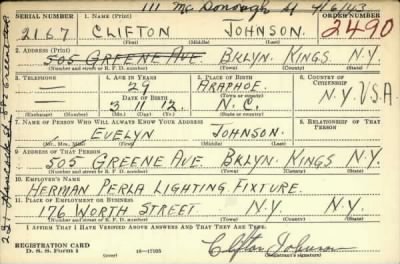 111 McDonough St 4/6/43
SERIAL NUMBER 1. NAME (Print) ORDER NUMBER
2167 CLIFTON JOHNSON. 2490
(First) (Middle) (Last)
2. ADDRESS (Print)
505 GREENE AVE BKLYN. KINGS N.Y.
(Number and street or R. F. D. number) (Town) (County) (State)
3. TELEPHONE 4. AGE IN YEARS 5. PLACE OF BIRTH 6. COUNTRY OF CITIZENSHIP
— 29 ARAPHOE.
DATE OF BIRTH (Town or county)
— 3 1 12. N.C. N.Y. U.S.A
(Exchange) (Number) (Mo.) (Day) (Yr.) (State or country)
7. NAME OF PERSON WHO WILL ALWAYS KNOW YOUR ADDRESS 8. RELATIONSHIP OF THAT PERSON
EVELYN JOHNSON.
(Mr., Mrs., Miss) (First) (Middle) (Last)
9. ADDRESS OF THAT PERSON
505 GREENE AVE. BRLYN. KINGS N.Y.
(Number and street or R. F. D. number) (Town) (County) (State)
10. EMPLOYER'S NAME
HERMAN PERLA LIGHTING FIXTURE.
11. PLACE OF EMPLOYMENT OR BUSINESS
176 WORTH STREET. N.Y. N.Y.
(Number and street or R. F. D. number) (Town) (County) (State)
I AFFIRM THAT I HAVE VERIFIED ABOVE ANSWERS AND THAT THEY ARE TRUE.
REGISTRATION CARD
D. S. S. Form 1 (over) 16—17105
Clifton Johnson
(Registrant's signature)